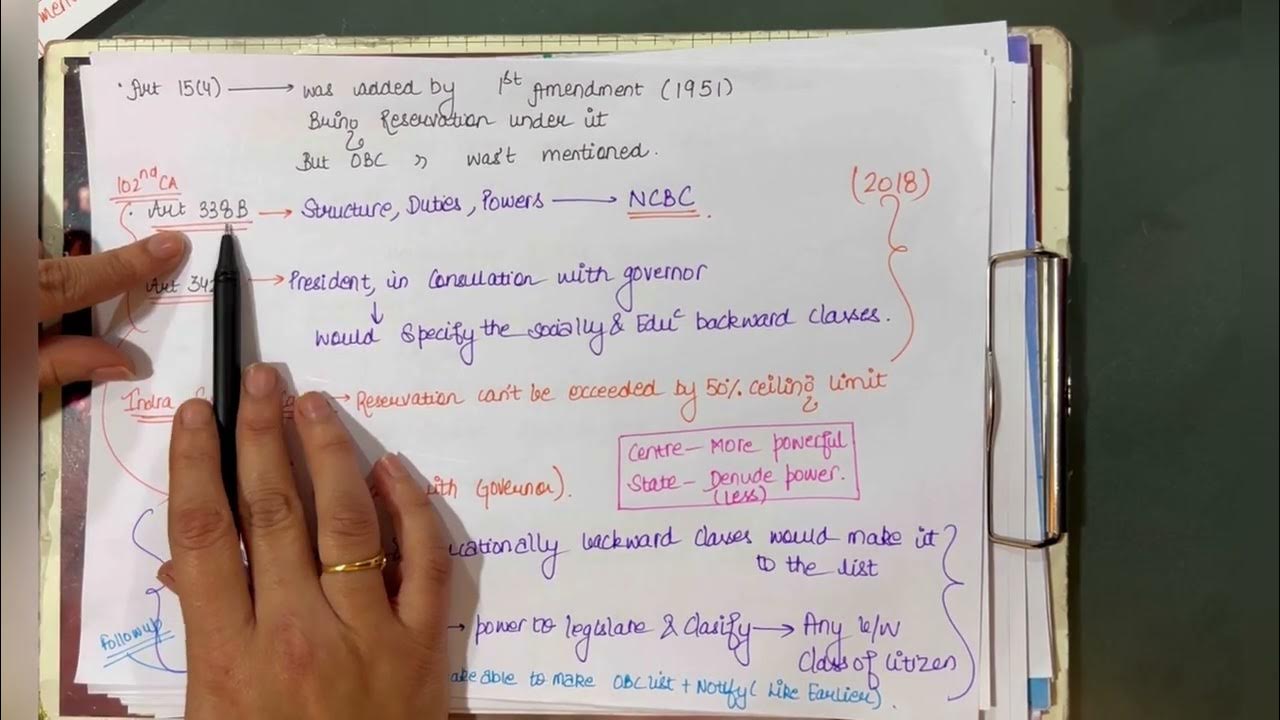 · Art 15(4) → was added by 1st Amendment (1951)
Bring Reservation under it
But OBC " was't mentioned.
102nd CA
(2018)
· Art 338B → Structure, Duties, Powers → NCBC.
Art 342 → President, in Consulation with governor
↓
would specify the socially & Educ backward classes.
Indra → Reservation can't be exceeded by 50% ceiling limit
Centre – More powerful
State – Denude power.
(less)
with Governor).
& backward classes would make it
to the list
→ power to legislare & Clasify → Any
Class of Citizen
Followup
able to make OBC list + Notify (Like Earlier).